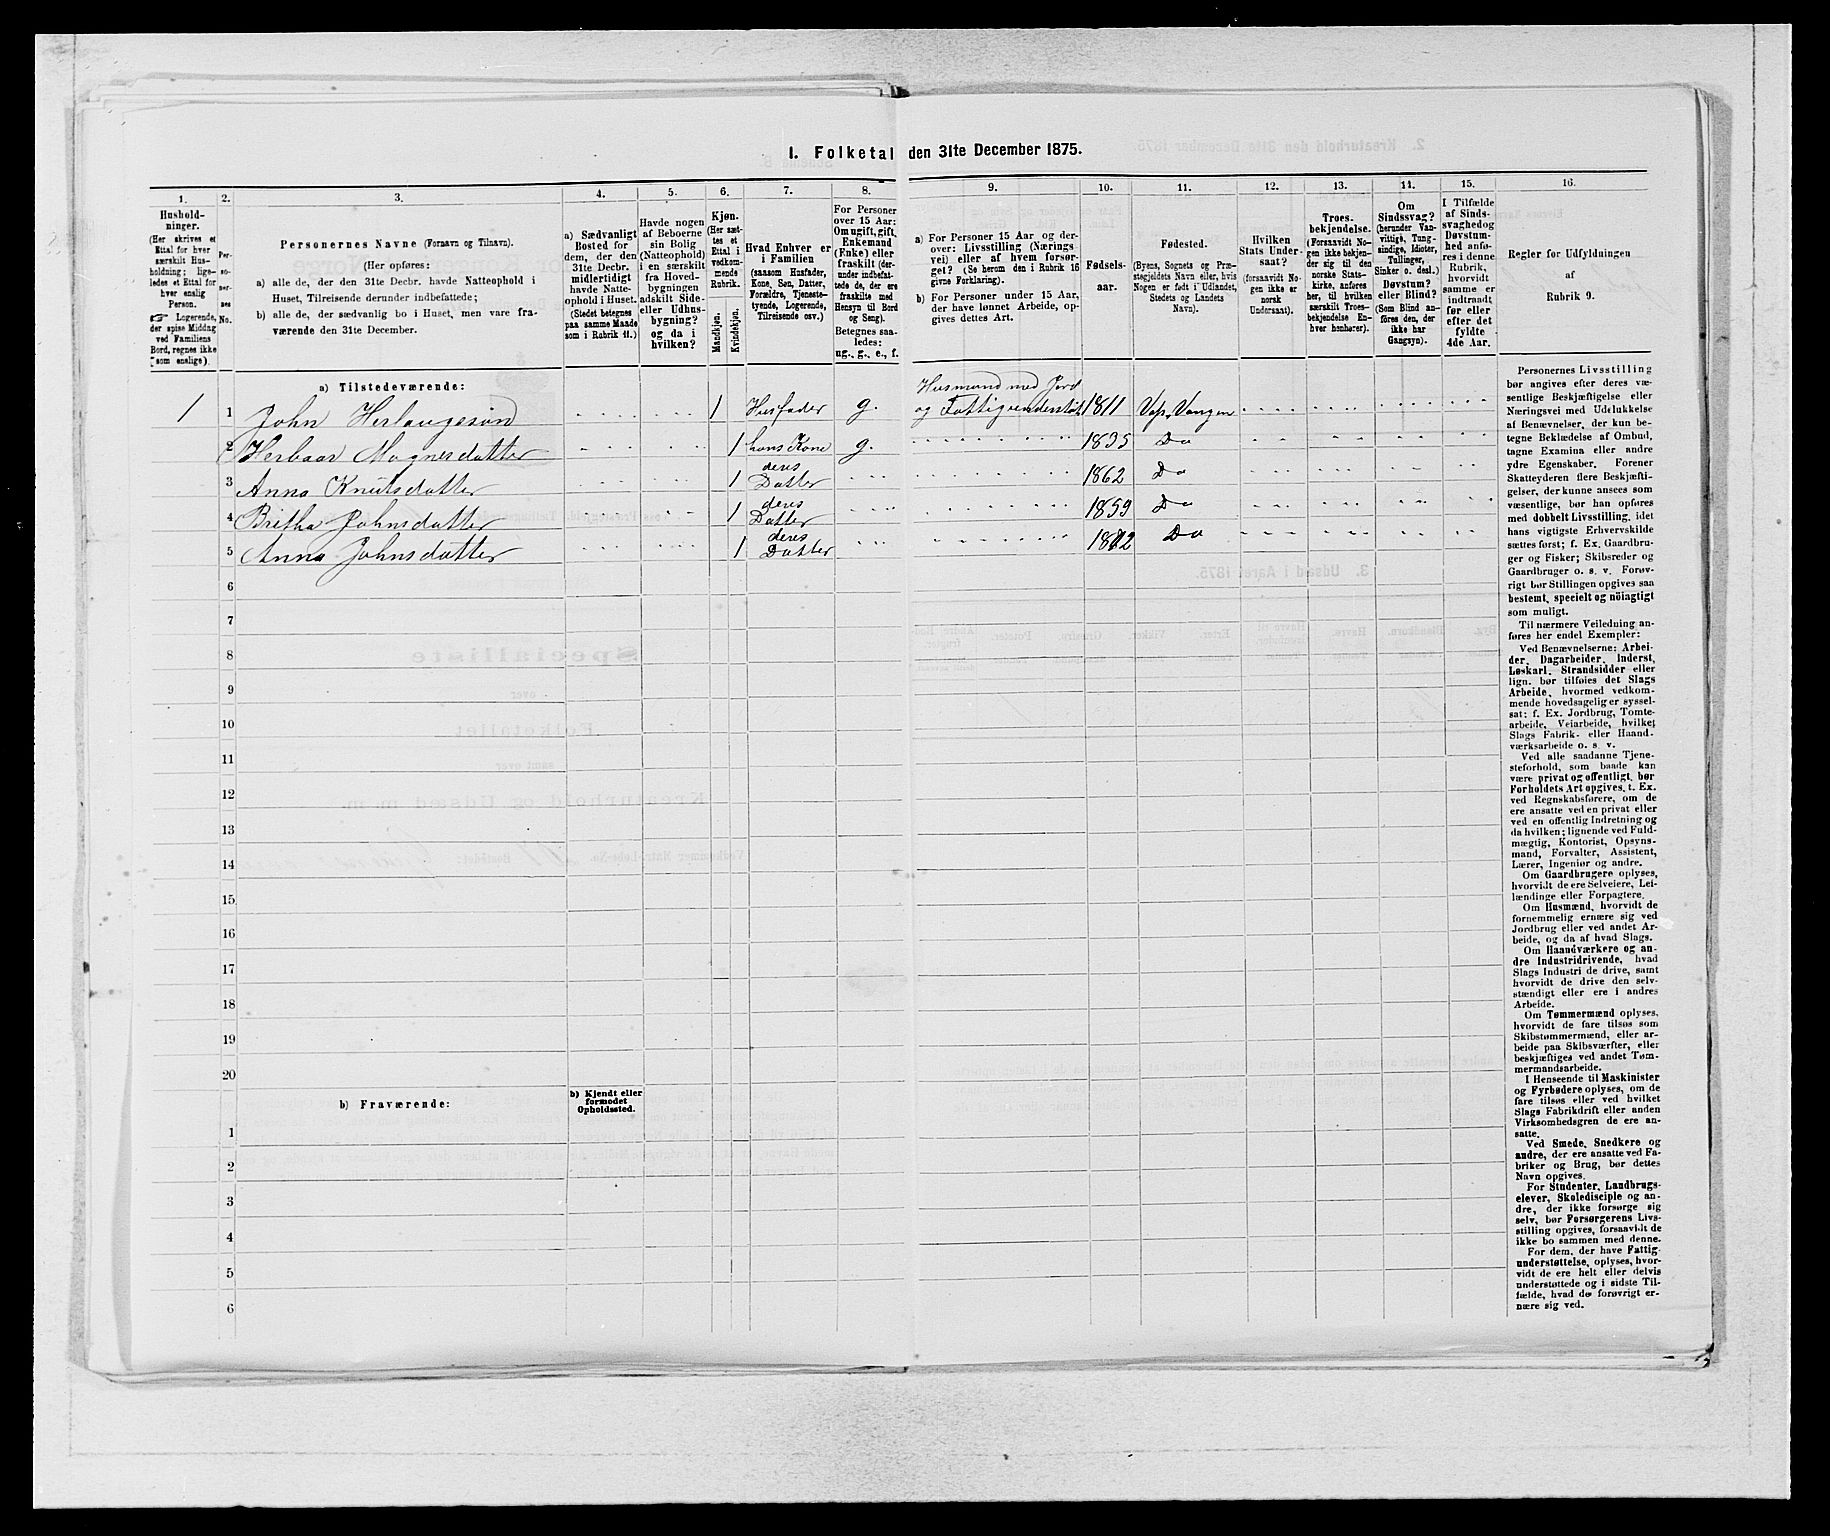 I. Folketal den 31te December 1875.
1. 2. 3. 4. 5. 6. 7. 8. 9. 10. 11. 12. 13. 14. 15. 16.
Hushold-
ninger.
(Her skrives et
Ettal for hver
særskilt Hus-
holdning; lige-
ledes et Ettal for
hver enslig
Person.
☞ Logerende,
der spise Middag
ved Familiens
Bord, regnes ikke
som enslige).
Per-
so-
ner-
nes
No.
Personernes Navne (Fornavn og Tilnavn).
(Her opføres:
a) alle de, der den 31te Decbr. havde Natteophold i
Huset, Tilreisende derunder indbefattede;
b) alle de, der sædvanlig bo i Huset, men vare fra-
værende den 31te December.
a) Sædvanligt
Bosted for
dem, der den
31te Decbr.
midlertidigt
havde Natte-
ophold i Huset.
(Stedet betegnes
paa samme Maade
som i Rubrik 11.)
Havde nogen
af Beboerne
sin Bolig
(Natteophold)
i en særskilt
fra Hoved-
bygningen
adskilt Side-
eller Udhus-
bygning?
og da i
hvilken?
Kjøn.
(Her sæt-
tes et
Ettal i
vedkom-
mende
Rubrik.
Mandkjøn.
Kvindekjøn.
Hvad Enhver er
i Familien
(saasom Husfader,
Kone, Søn, Datter,
Forældre, Tjeneste-
tyende, Logerende,
Tilreisende osv.)
For Personer
over 15 Aar:
Om ugift, gift,
Enkemand
(Enke) eller
fraskilt (der-
under indbefat-
tede de, der ere
fraskilte med
Hensyn til Bord
og Seng).
Betegnes saa-
ledes:
ug., g., e., f.
a) For Personer 15 Aar og der-
over: Livsstilling (Nærings-
vei) eller af hvem forsør-
get? (Se herom den i Rubrik 16
givne Forklaring).
b) For Personer under 15 Aar,
der have lønnet Arbeide, op-
gives dettes Art.
Fødsels-
aar.
Fødested.
(Byens, Sognets og Præ-
stegjeldets Navn eller, hvis
Nogen er født i Udlandet,
Stedets og Landets
Navn).
Hvilken
Stats Under-
saat?
(forsaavidt No-
gen ikke er
norsk
Undersaat).
Troes-
bekjendelse.
(Forsaavidt No-
gen ikke bekjen-
der sig til den
norske Stats-
kirke, anføres
her, til hvilken
særskilt Troes-
bekjendelse En-
hver henhører).
Om
Sindssvag?
(herunder Van-
vittige, Tung-
sindige, Idioter,
Tullinger,
Sinker o. desl.)
Døvstum?
eller Blind?
(Som Blind an-
føres den, der
ikke har
Gangsyn).
I Tilfælde
af Sinds-
svaghedog
Døvstum-
hed anfø-
res i denne
Rubrik,
hvorvidt
samme er
indtraadt
før eller
efter det
fyldte
4de Aar.
Regler for Udfyldningen
af
Rubrik 9.
a) Tilstedeværende:
1 1 John Herlaugssøn 1 Husfader g. Husmand med Jord
og Fattigunderstøt 1811 Vos, Vangen
2 Herbaar Magnesdatter 1 hans Kone g. 1835 Do
3 Anna Knutsdatter 1 deres Datter 1862 Do
4 Britha Johnsdatter 1 deres Datter 1859 Do
5 Anna Johnsdatter 1 deres Datter 1872 Do
6
7
8
9
10
11
12
13
14
15
16
17
18
19
20
b) Fraværende:
b) Kjendt eller
formodet
Opholdssted.
1
2
3
4
5
6
Personernes Livsstilling
bør angives efter deres væ-
sentlige Beskjæftigelse eller
Næringsvei med Udelukkelse
af Benævnelser, der kun be-
tegne Beklædelse af Ombud,
tagne Examina eller andre
ydre Egenskaber. Forener
Skatteyderen flere Beskjæfti-
gelser, der kunne ansees som
væsentlige, bør han opføres
med dobbelt Livsstilling, idet
hans vigtigste Erhvervskilde
sættes først; f. Ex. Gaardbru-
ger og Fisker; Skibsreder og
Gaardbruger o. s. v. Forøv-
rigt bør Stillingen opgives saa
bestemt, specielt og nöiagtigt
som muligt.
Til nærmere Veiledning an-
føres her endel Exempler:
Ved Benævnelserne: Arbei-
der, Dagarbeider, Inderst,
Løskarl, Strandsidder eller
lign. bør tilføies det Slags
Arbeide, hvormed vedkom-
mende hovedsagelig er syssel-
sat; f. Ex. Jordbrug, Tomte-
arbeide, Veiarbeide, hvilket
Slags Fabrik- eller Haand-
værksarbeide o. s. v.
Ved alle saadanne Tjene-
steforhold, som baade kan
være privat og offentligt, bør
Forholdets Art opgives, t. Ex.
ved Regnskabsførere, om de
ere ansatte ved en privat eller
ved en offentlig Indretning og
da hvilken; lignende ved Fuld-
mægtig, Kontorist, Opsyns-
mand, Forvalter, Assistent,
Lærer, Ingeniør og andre.
Om Gaardbrugere oplyses,
hvorvidt de ere Selveiere, Lei-
lændinge eller Forpagtere.
Om Husmænd, hvorvidt de
fornemmelig ernære sig ved
Jordbrug eller ved andet Ar-
beide, og da af hvad Slags.
Om Haandværkere og an-
dre Industridrivende, hvad
Slags Industri de drive, samt
hvorvidt de drive den selv-
stændigt eller ere i andres
Arbeide.
Om Tømmermænd oplyses,
hvorvidt de fare tilsøs som
Skibstømmermænd, eller ar-
beide paa Skibsværfter, eller
beskjæftiges ved andet Tøm-
mermandsarbeide.
I Henseende til Maskinister
og Fyrbødere oplyses, om de
fare tilsøs eller ved hvilket
Slags Fabrikdrift eller anden
Virksomhedsgren de ere an-
satte.
Ved Smede, Snedkere og
andre, der ere ansatte ved Fa-
briker og Brug, bør dettes
Navn opgives.
For Studenter, Landbrugs-
elever, Skoledisciple og an-
dre, der ikke forsørge sig
selv, bør Forsørgerens Livs-
stilling opgives, forsaavidt de
ikke bo sammen med denne.
For dem, der have Fattig-
understøttelse, oplyses, hvor-
vidt de ere helt eller delvis
understøttede og i sidste Til-
fælde, hvad de forøvrigt er-
nære sig ved.